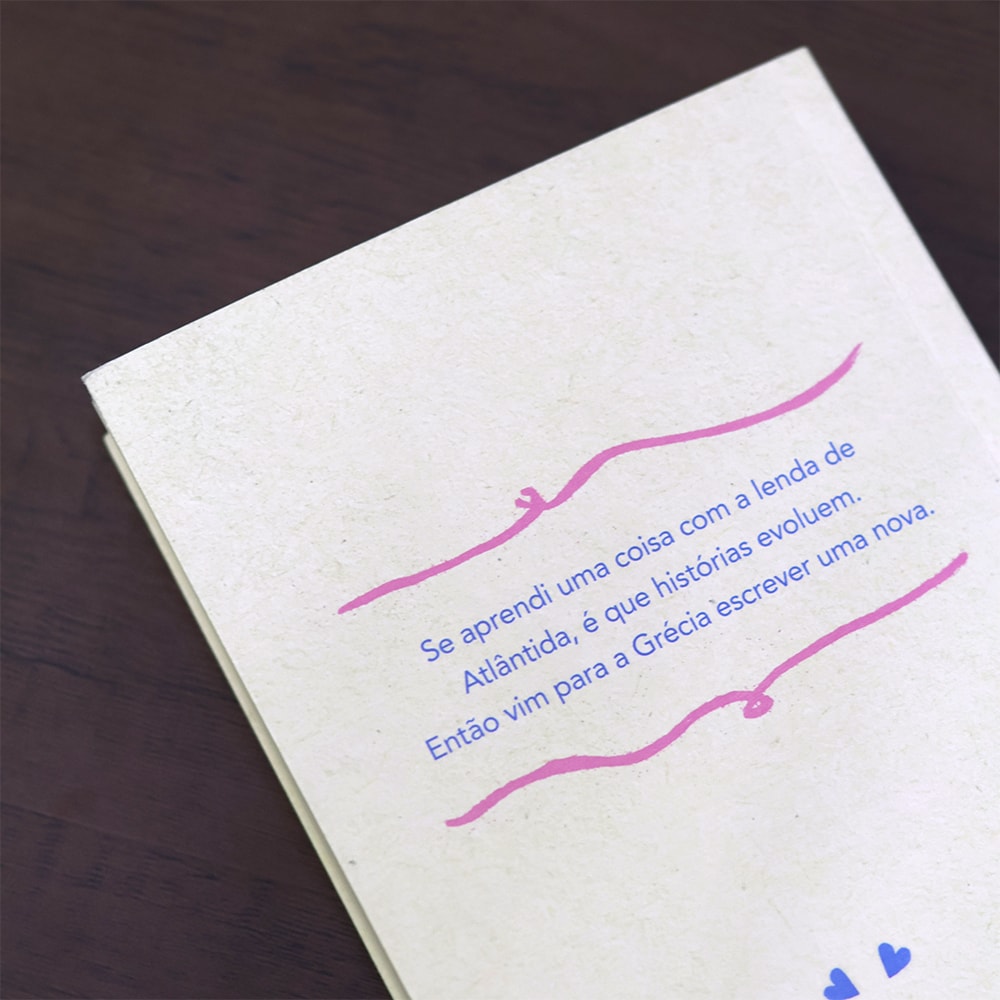 Se aprendi uma coisa com a lenda de
Atlântida, é que histórias evoluem.
Então vim para a Grécia escrever uma nova.